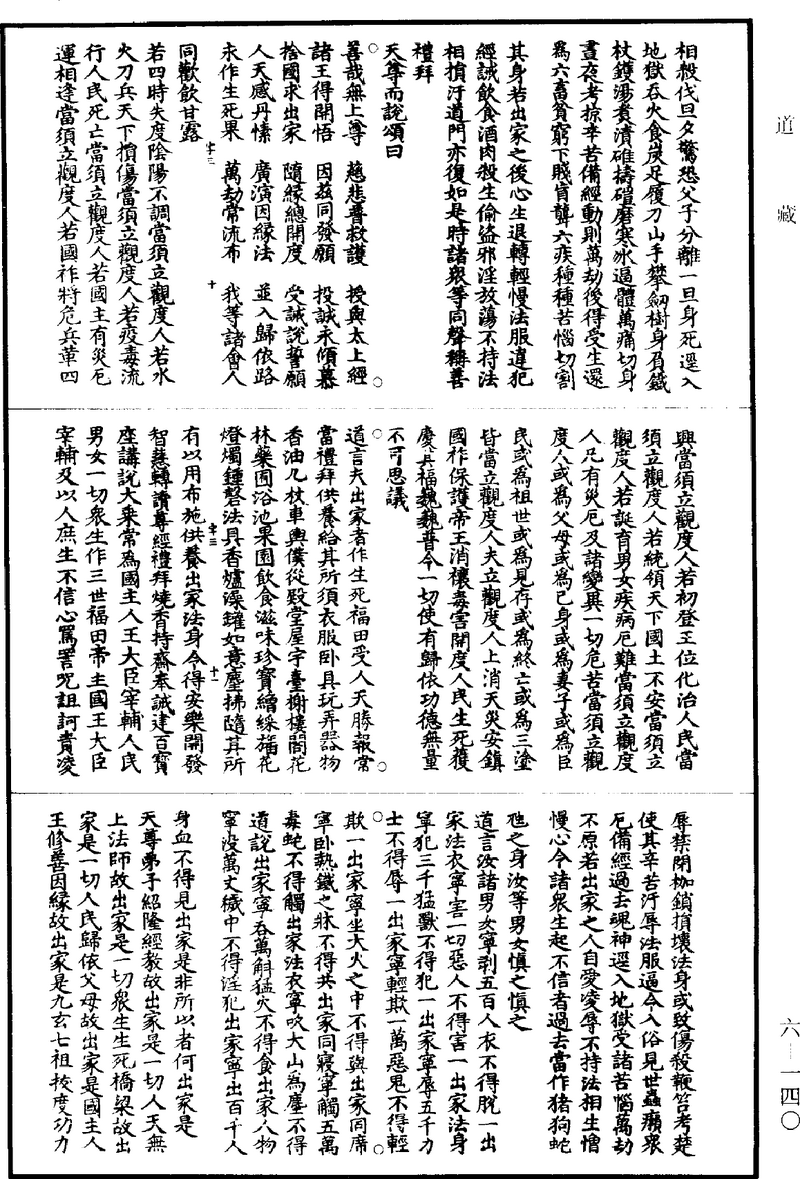 道藏
相殺伐旦夕驚恐父子分離一旦身死逕入
地獄吞火食炭足履刀山手攀劒樹身負鐵
杖鑊湯煮漬碓擣磑磨寒氷逼體萬痛切身
晝夜考掠辛苦備經動則萬劫後得受生還
爲六畜貧窮下賤盲聾六疾種種苦惱切割
其身若出家之後心生退轉輕慢法服違犯
經誡飲食酒肉殺生偷盜邪淫放蕩不持法
相損汙道門亦復如是時諸衆等同聲稱善
禮拜
天尊而說頌曰
善哉無上尊　慈悲普救護　授與太上經
諸王得開悟　因茲同發願　投誠永傾慕
捨國求出家　隨緣總開度　受誡說誓願
人天感丹愫　廣演因緣法　並入歸依路
永作生死果　萬劫常流布　我等諸會人
同歡飲甘露
若四時失度陰陽不調當須立觀度人若水
火刀兵天下損傷當須立觀度人若疫毒流
行人民死亡當須立觀度人若國主有災厄
運相逢當須立觀度人若國祚將危兵革四
興當須立觀度人若初登王位化治人民當
須立觀度人若統領天下國土不安當須立
觀度人若誕育男女疾病厄難當須立觀度
人凡有災厄及諸變異一切危苦當須立觀
度人或爲父母或爲己身或爲妻子或爲臣
民或爲祖世或爲見存或爲終亡或爲三塗
皆當立觀度人夫立觀度人上消天災安鎮
國祚保護帝王消禳毒害開度人民生死獲
慶其福巍巍普令一切使有歸依功德無量
不可思議
道言夫出家者作生死福田受人天勝報常
當禮拜供養給其所須衣服卧具玩弄器物
香油几杖車輿僕從殿堂屋宇臺榭樓閣花
林藥園浴池果園飲食滋味珍寶繒綵旛花
燈燭鍾磬法具香爐澡罐如意塵拂隨其所
有以用布施供養出家法身令得安樂開發
智慧轉讀尊經禮拜燒香持齋奉誡建百寶
座講說大乘常爲國主人王大臣宰輔人民
男女一切衆生作三世福田帝主國王大臣
宰輔及以人庶生不信心罵詈咒詛訶責凌
辱禁閉枷鎖損壞法身或致傷殺鞭笞考楚
使其辛苦汙辱法服逼令入俗見世蟲癩衆
厄備經過去魂神逕入地獄受諸苦惱萬劫
不原若出家之人自愛凌辱不持法相生憎
慢心令諸衆生起不信者過去當作猪狗蛇
虺之身汝等男女慎之慎之
道言汝諸男女寧剥五百人衣不得脫一出
家法衣寧害一切惡人不得害一出家法身
寧犯三千猛獸不得犯一出家寧辱五千力
士不得辱一出家寧輕欺一萬惡鬼不得輕
欺一出家寧坐大火之中不得與出家同席
寧卧熱鐵之牀不得共出家同寢寧觸五萬
毒蛇不得觸出家法衣寧吹大山爲塵不得
道說出家寧吞萬斛猛火不得食出家人物
寧没萬丈穢中不得淫犯出家寧出百千人
身血不得見出家是非所以者何出家是
天尊弟子紹隆經教故出家是一切人天無
上法師故出家是一切衆生生死橋梁故出
家是一切人民歸依父母故出家是國主人
王修善因緣故出家是九玄七祖拔度功力
字三
十
字三
十一
六—一四〇